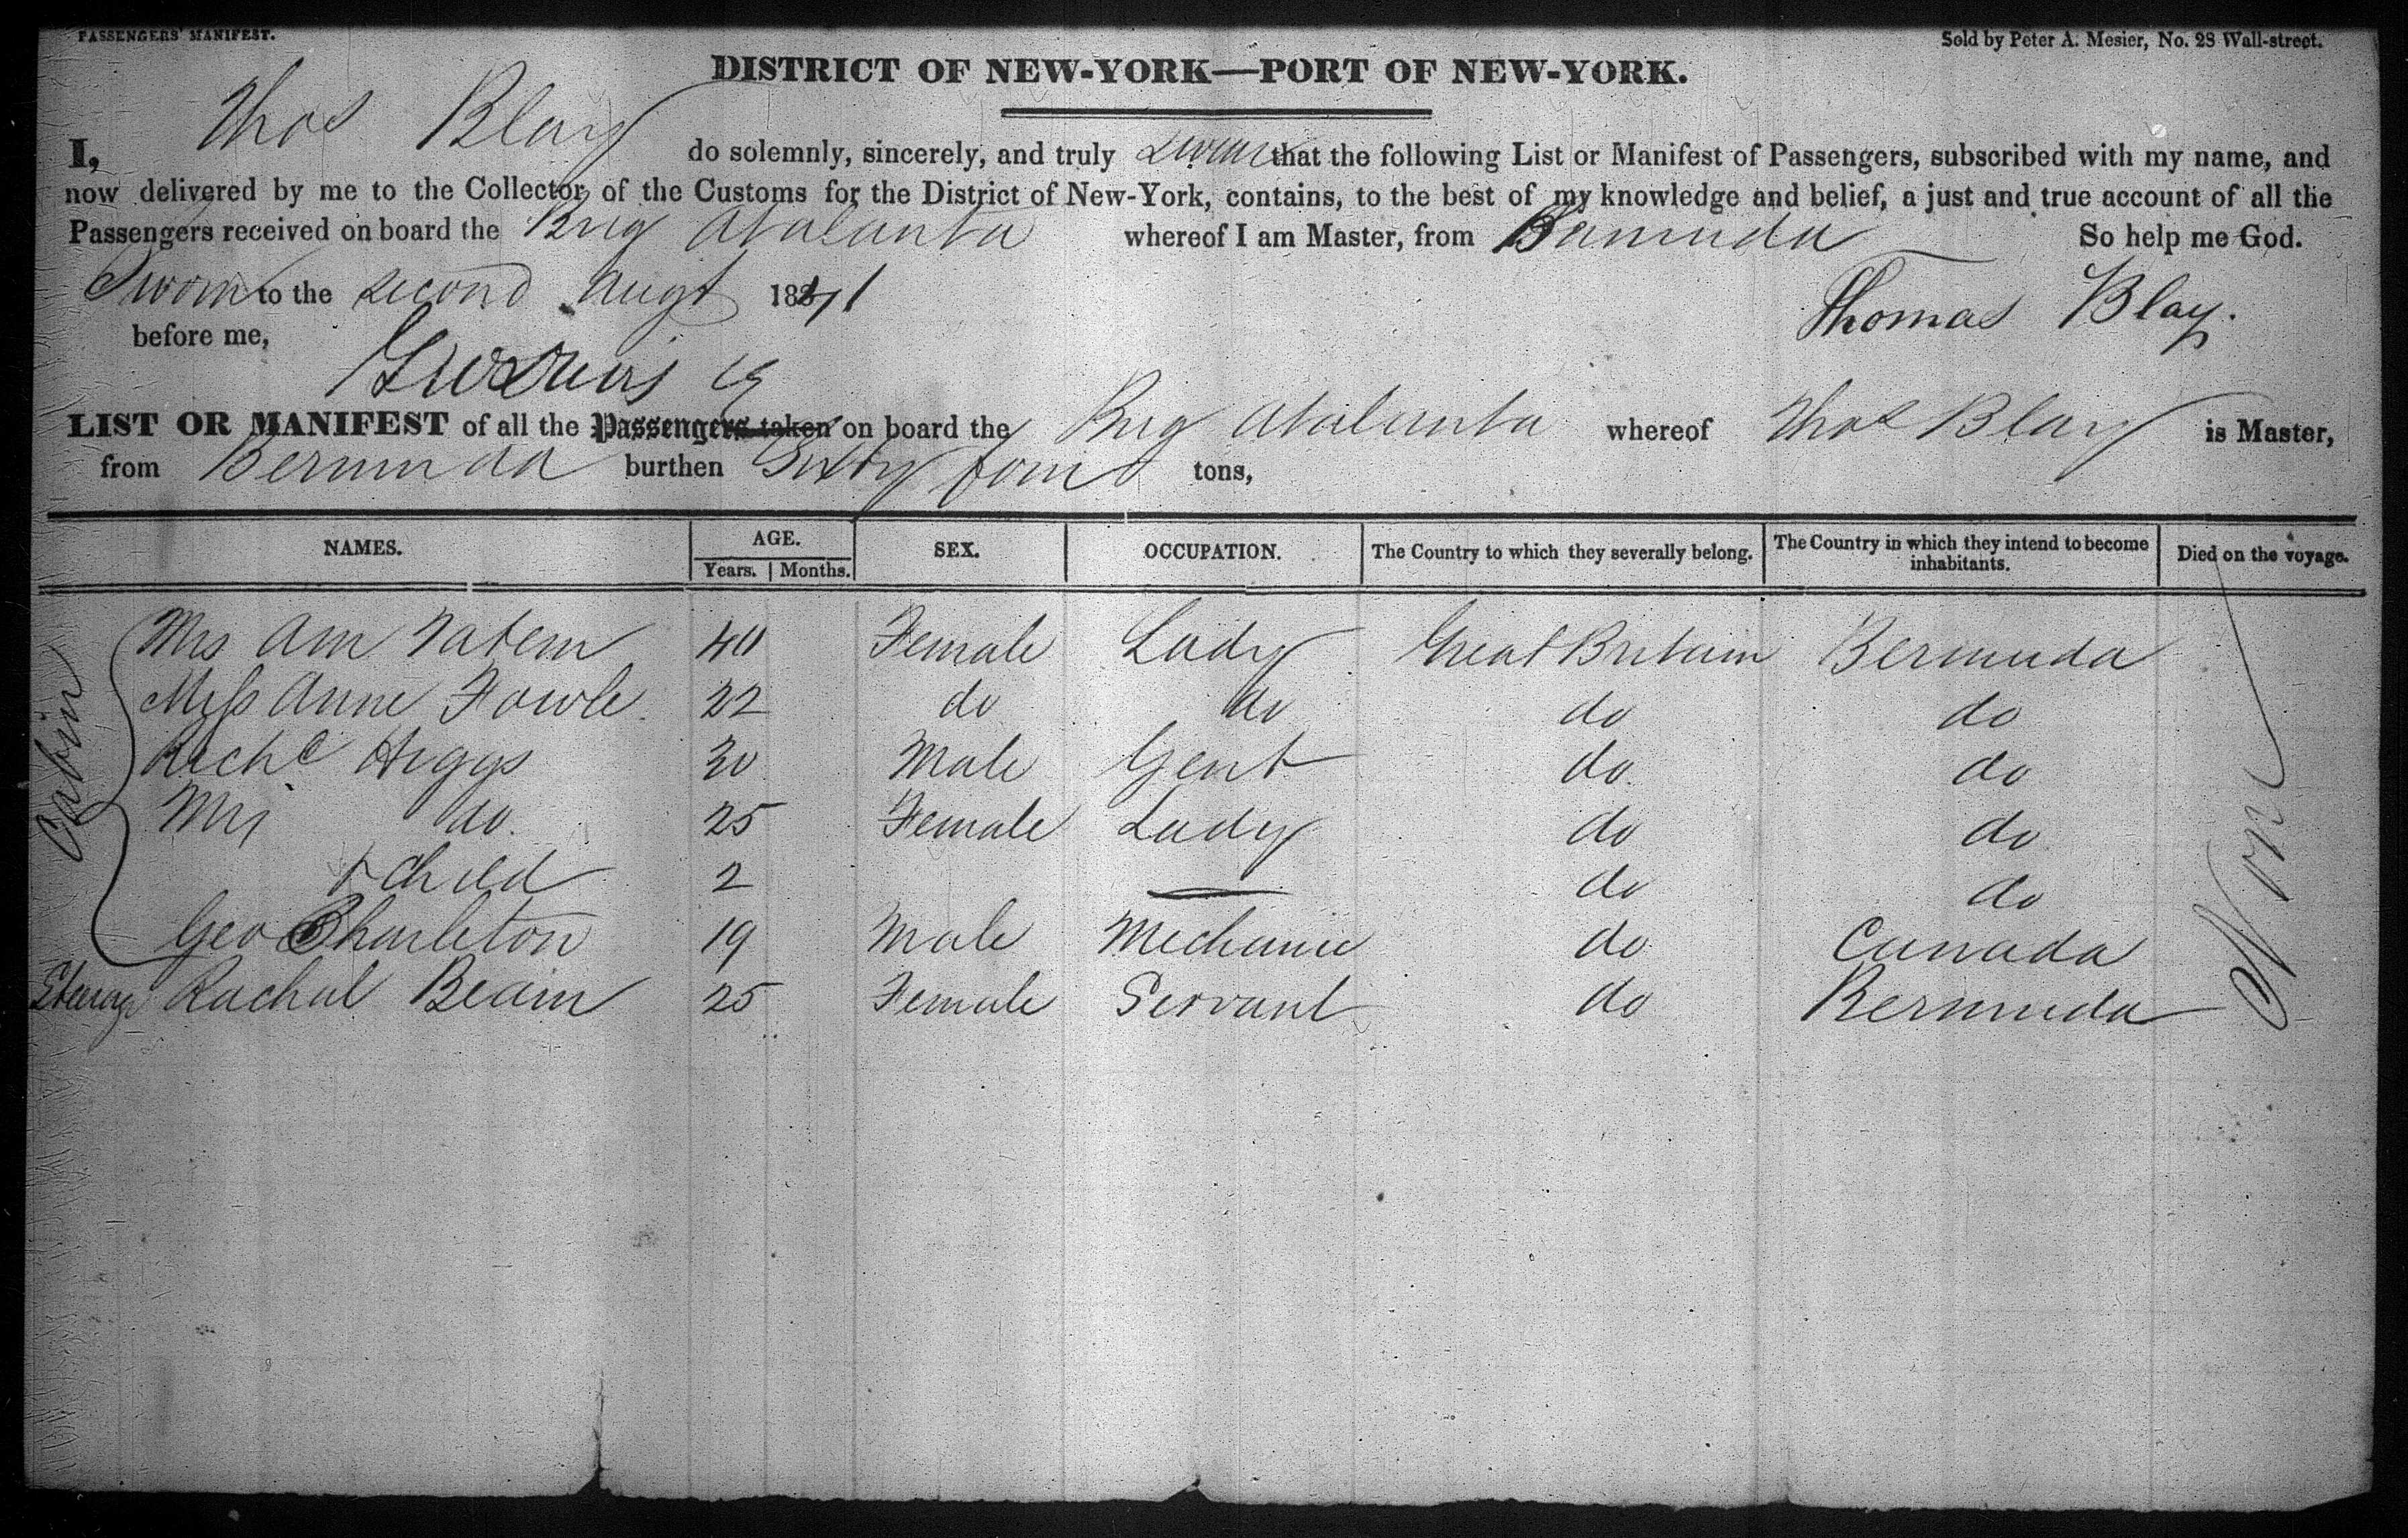 PASSENGERS' MANIFEST.
Sold by Peter A. Mesier, No. 28 Wall-street.
DISTRICT OF NEW-YORK—PORT OF NEW-YORK.
I, Thos Blay do solemnly, sincerely, and truly swear that the following List or Manifest of Passengers, subscribed with my name, and
now delivered by me to the Collector of the Customs for the District of New-York, contains, to the best of my knowledge and belief, a just and true account of all the
Passengers received on board the Brig Atalanta whereof I am Master, from Bermuda So help me God.
Sworn to the second Augt 1841
Thomas Blay.
before me,
LIST OR MANIFEST of all the Passengers taken on board the Brig Atalanta whereof Thos Blay is Master,
from Bermuda burthen Sixty four tons,
NAMES. AGE. Years. Months. SEX. OCCUPATION. The Country to which they severally belong. The Country in which they intend to become inhabitants. Died on the voyage.
Cabin
Mrs Ann Tatem 40 Female Lady Great Britain Bermuda
Miss Anne Fowle 22 do do do do
Richd Higgs 30 Male Gent do do
Mrs do 25 Female Lady do do
+ Child 2 — do do
Geo Charleton 19 Male Mechanic do Canada
Steerage Rachal Beam 25 Female Servant do Bermuda
None